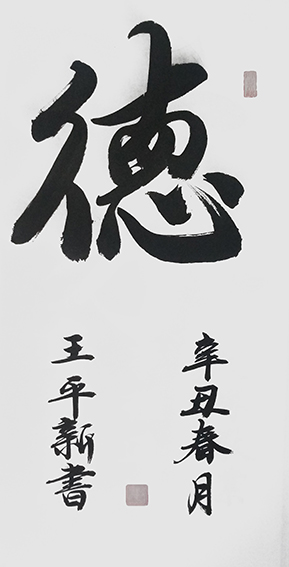 德
辛丑春月
王平新書